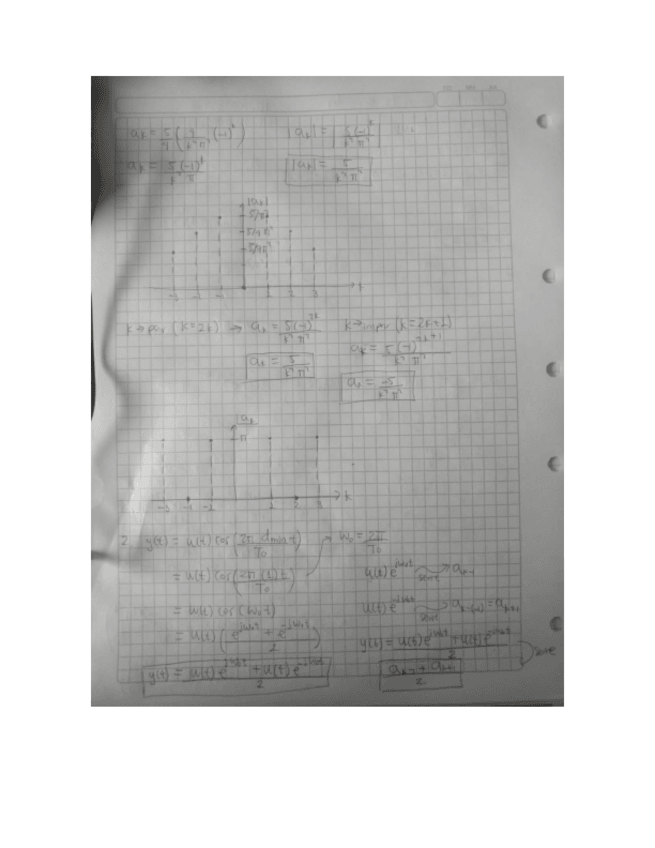 a_k = 5/4 (4/(k²π²) (-1)^k)   |a_k| = |5(-1)^k/(k²π²)|
a_k = 5(-1)^k/(k²π²)   |a_k| = 5/(k²π²)
|a_k|
5/π²
5/4π²
5/9π²
-3 -2 -1 1 2 3 k
k→par (k=2k) → a_k = 5(-1)^{2k}/(k²π²)   k→impar (k=2k+1)
a_k = 5(-1)^{2k+1}/(k²π²)
a_k = 5/(k²π²)
a_k = -5/(k²π²)
π
1 2 3 k
2. y(t) = u(t) cos(2π t/T₀)   ω₀ = 2π/T₀
= u(t) cos(2π (1) t/T₀)   u(t) e^{jω₀t} → a_{k-1}
= u(t) cos(ω₀t)   u(t) e^{-jω₀t} → a_{k-(-1)} = a_{k+1}
= u(t) ((e^{jω₀t} + e^{-jω₀t})/2)   y(t) = (u(t) e^{jω₀t} + u(t) e^{-jω₀t})/2
y(t) = (u(t) e^{jω₀t} + u(t) e^{-jω₀t})/2   (a_{k-1} + a_{k+1})/2